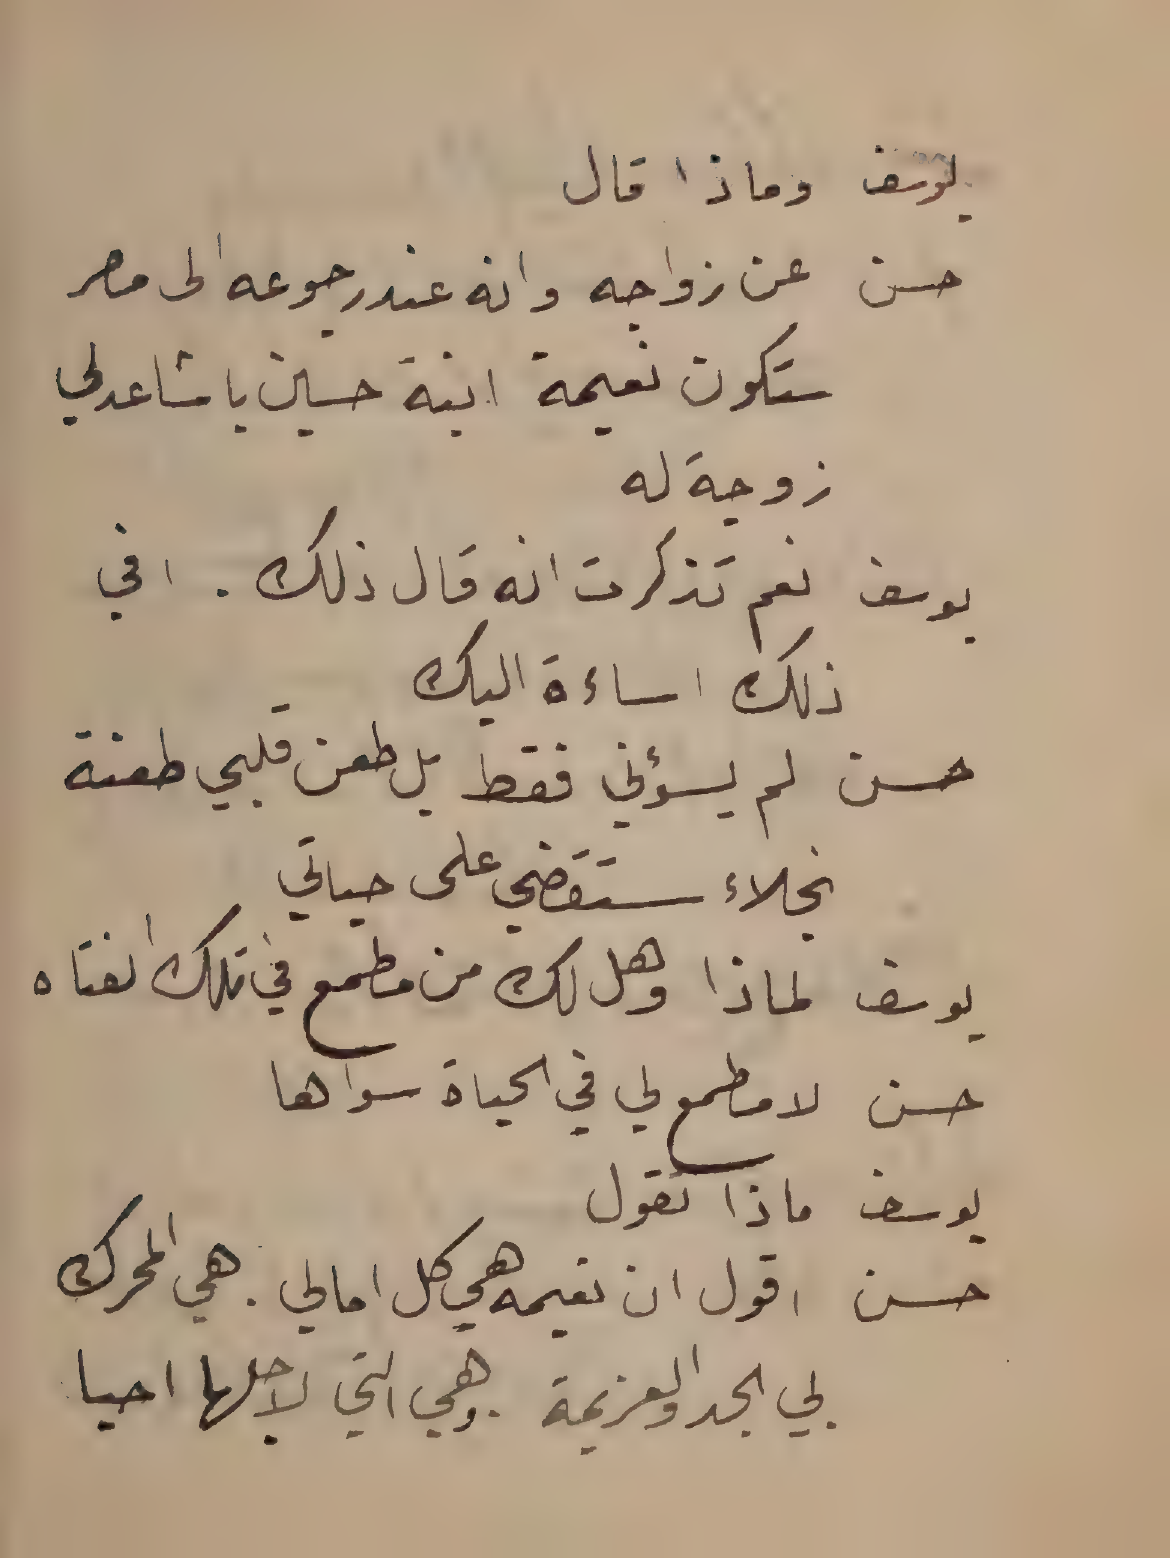 يوسف وماذا قال
حسن عن زواجه وانه عند رجوعه الى مصر
ستكون نعيمة ابنة حسين باشا عدلي
زوجة له
يوسف نعم تذكرت انه قال ذلك . افي
ذلك اساءة اليك
حسن لم يسؤني فقط بل طعن قلبي طعنة
نجلاء ستقضي على حياتي
يوسف لماذا وهل لك من مطمع في تلك الفتاه
حسن لا مطمع لي في الحياة سواها
يوسف ماذا تقول
حسن اقول ان نعيمه هي كل امالي . هي المحرك
لي الجد والعزيمة . وهي التي لاجلها احيا